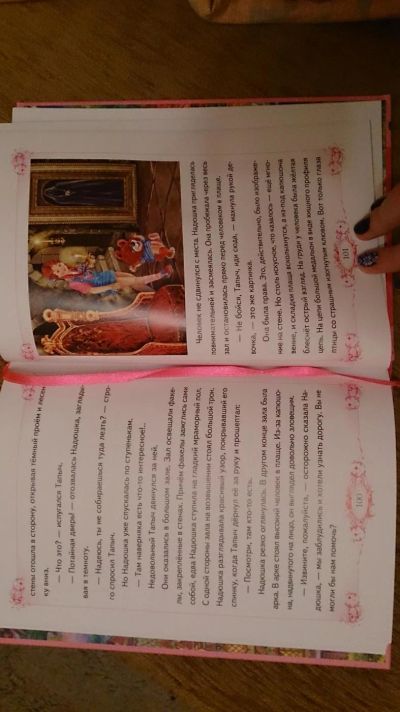 стены отошла в сторону, открывая тёмный проём и лесен-
ку вниз.
— Что это? — испугался Тапыч.
— Потайная дверь! — отозвалась Надюшка, загляды-
вая в темноту.
— Надеюсь, ты не собираешься туда лезть? — стро-
го спросил Тапыч.
Но Надюшка уже спускалась по ступенькам.
— Там наверняка есть что-то интересное!..
Недовольный Тапыч двинулся за ней.
Они оказались в большом зале. Зал освещали факе-
лы, закреплённые в стенах. Причём факелы зажглись сами
собой, едва Надюшка ступила на гладкий мраморный пол.
С одной стороны зала на возвышении стоял большой трон.
Надюшка разглядывала красивый узор, покрывавший его
спинку, когда Тапыч дёрнул её за руку и прошептал:
— Посмотри, там кто-то есть.
Надюшка резко оглянулась. В другом конце зала была
арка. В арке стоял высокий человек в плаще. Из-за капюшо-
на, надвинутого на лицо, он выглядел довольно зловещим.
— Извините, пожалуйста, — осторожно сказала На-
дюшка, — мы заблудились и хотели узнать дорогу. Вы не
могли бы нам помочь?
100
Человек не сдвинулся с места. Надюшка пригляделась
повнимательней и засмеялась. Она пробежала через весь
зал и остановилась прямо перед человеком в плаще.
— Не бойся, Тапыч, иди сюда, — махнула рукой де-
вочка, — это же картинка.
Она была права. Это, действительно, было изображе-
ние на стене. Но столь искусное, что казалось — ещё мгно-
вение, и складки плаща всколыхнутся, а из-под капюшона
блеснёт острый взгляд. На груди у человека была жёлтая
цепь. На цепи большой медальон в виде хищного профиля
птицы со страшным изогнутым клювом. Вот только глаза
101